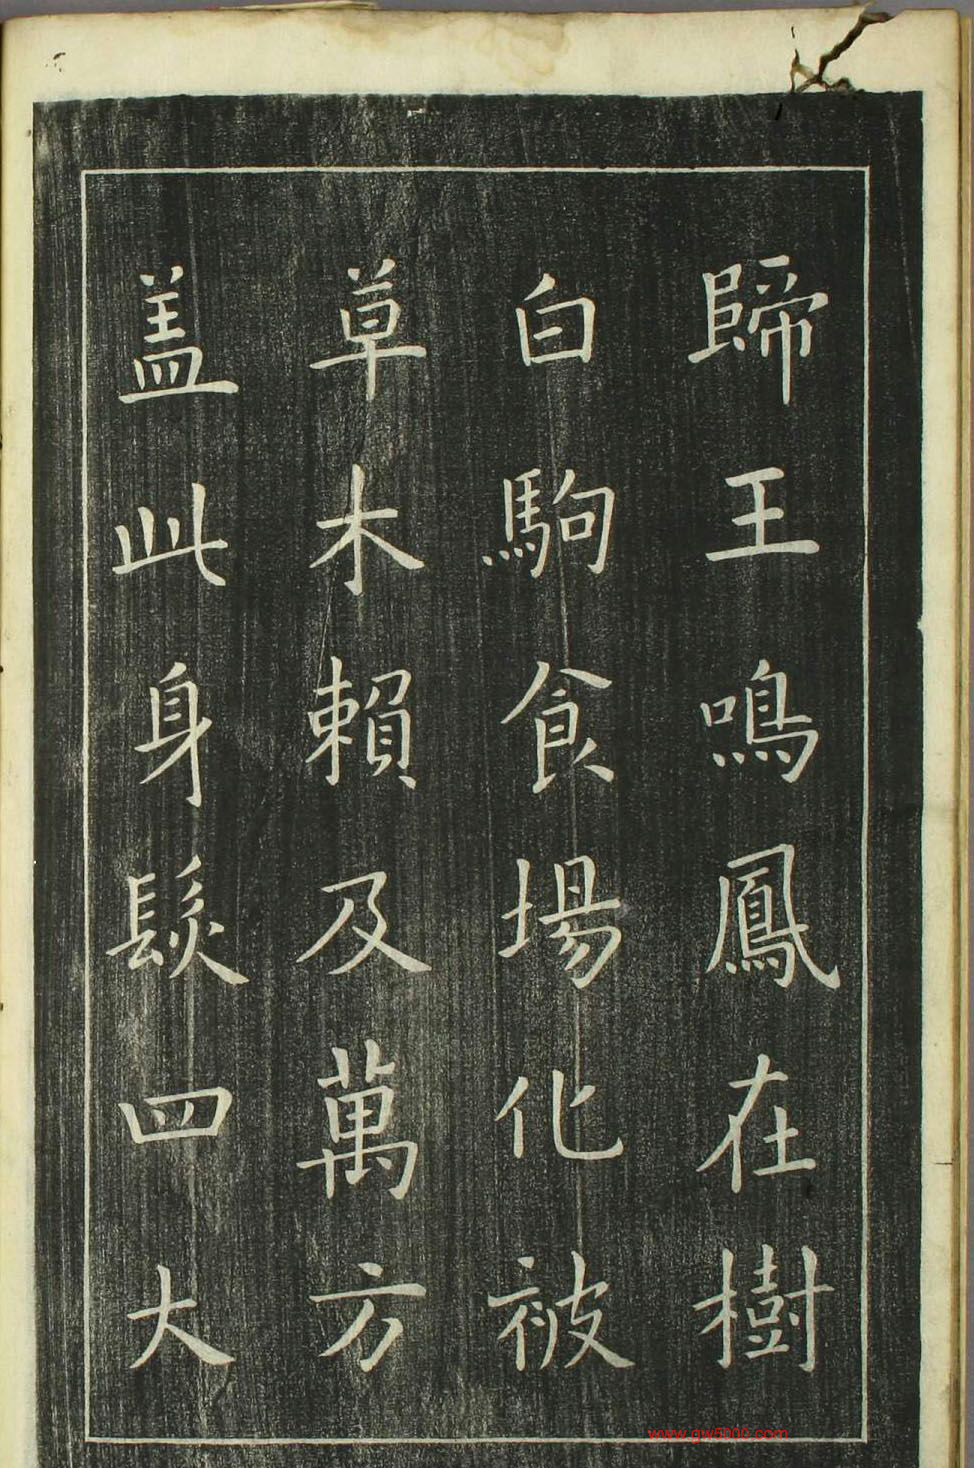 歸王鳴鳳在樹
白駒食場化被
草木賴及萬方
盖此身髮四大
www.gw5000.com